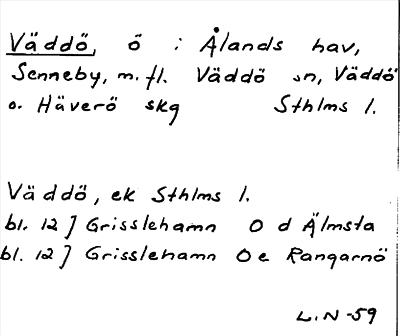 Väddö, ö i Ålands hav,
Senneby, m. fl. Väddö sn, Väddö
o. Häverö skg Sthlms l.
Väddö, ek Sthlms l.
bl. 12] Grisslehamn O d Älmsta
bl. 12] Grisslehamn O e Rangarnö
L.N -59